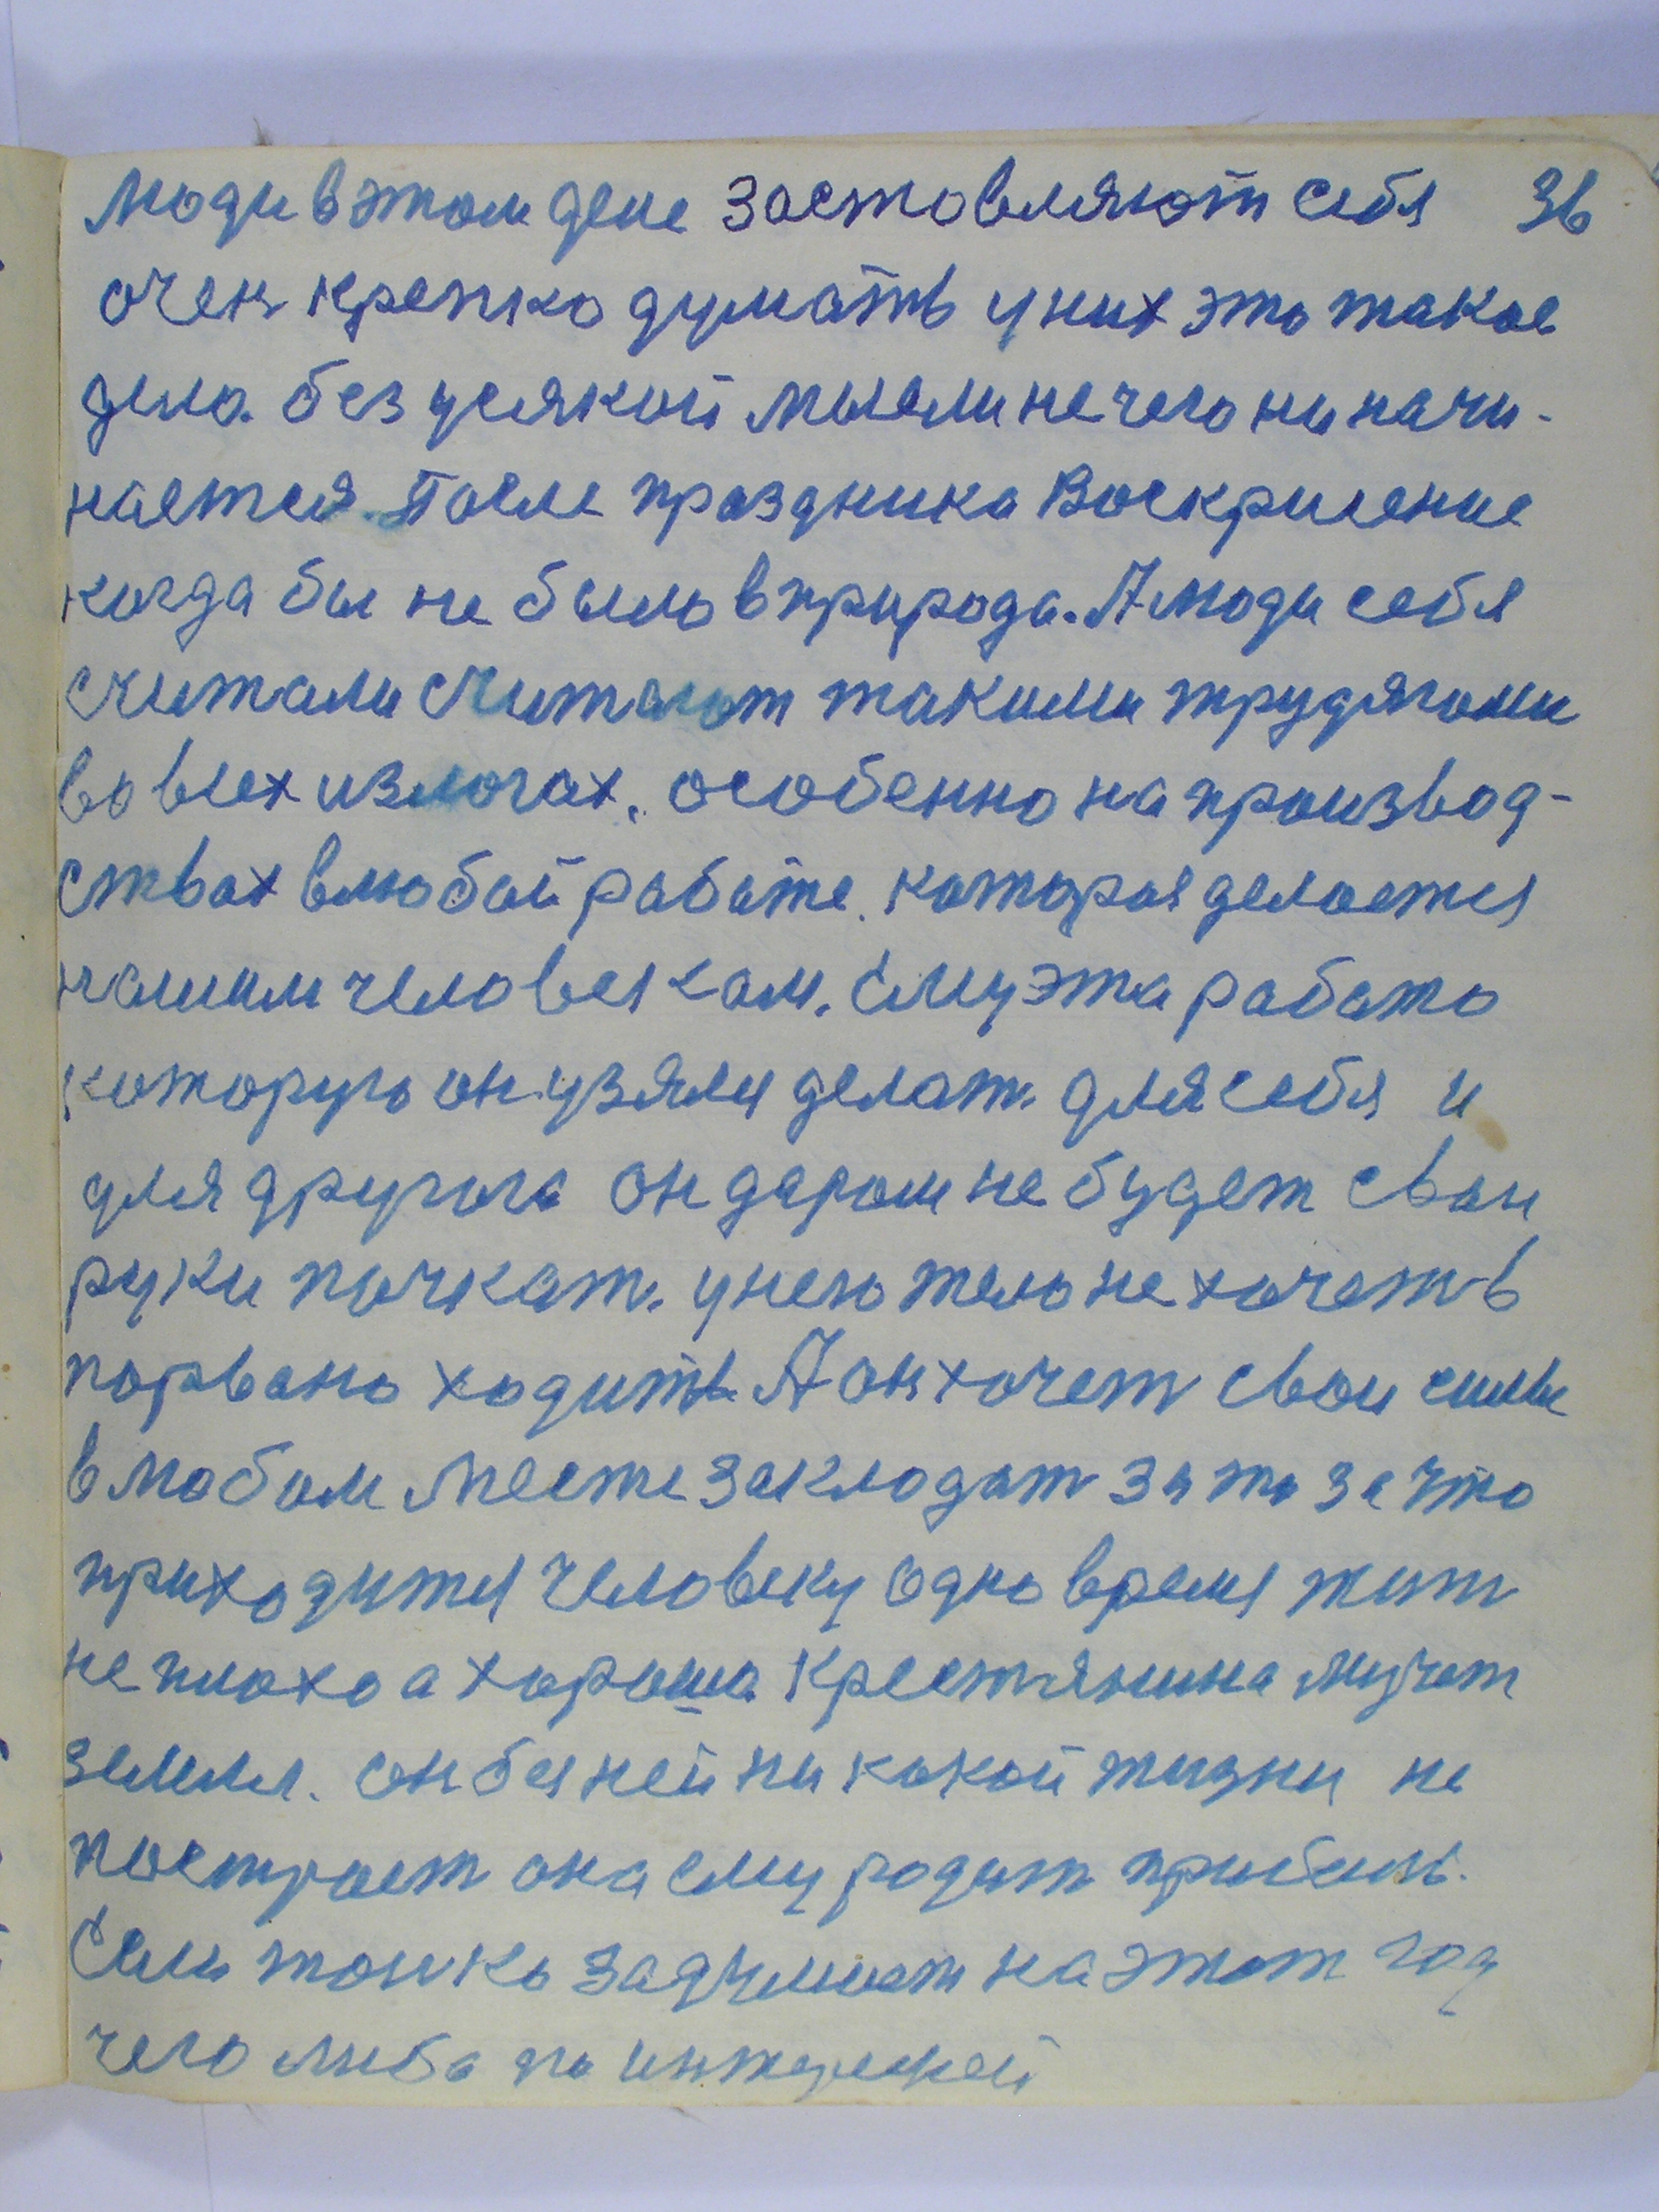 люди в этом деле заставляют себя 36
очен крепко думать у них это такое
дело. без усякой мысли не чего ни начи-
нается. После праздника Воскрисение
когда бы не было в природе. А люди себя
считали считают такими трудягами
во всех излогах, особенно на производ-
ствах в любой работе. которая делается
нашим человекам. Ему эта работа
которую он узялся делат. для себя и
для другога он даром не будет свои
руки пачкат. у него тело не хочеть
порвано ходить. А он хочет свои силы
в любом месте закладат за то за что
приходится человеку одно время жит
не плохо а хороша Крестянина мучет
земля. он без ней ни какой жизни не
построет она ему родит прибыль.
Если только задумает на этот год
чего либо по